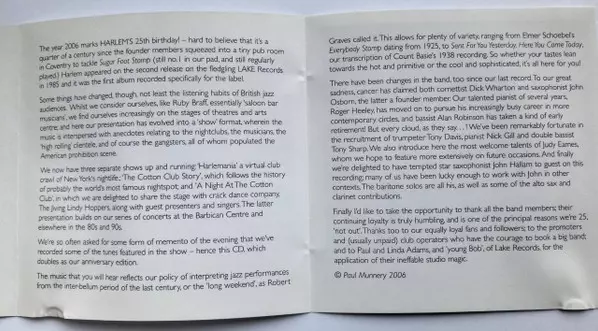 The year 2006 marks HARLEM'S 25th birthday! – hard to believe that it's a
quarter of a century since the founder members squeezed into a tiny pub room
in Coventry to tackle Sugar Foot Stomp (still no.1 in our pad, and still regularly
played.) Harlem appeared on the second release on the fledgling LAKE Records
in 1985 and it was the first album recorded specifically for the label.
Some things have changed, though, not least the listening habits of British jazz
audiences. Whilst we consider ourselves, like Ruby Braff, essentially 'saloon bar
musicians', we find ourselves increasingly on the stages of theatres and arts
centre; and here our presentation has evolved into a 'show' format, wherein the
music is interspersed with anecdotes relating to the nightclubs, the musicians, the
'high rolling' clientele, and of course the gangsters, all of whom populated the
American prohibition scene.
We now have three separate shows up and running: 'Harlemania' a virtual club
crawl of New York's nightlife; 'The Cotton Club Story', which follows the history
of probably the world's most famous nightspot; and 'A Night At The Cotton
Club', in which we are delighted to share the stage with crack dance company,
The Jiving Lindy Hoppers, along with guest presenters and singers. The latter
presentation builds on our series of concerts at the Barbican Centre and
elsewhere in the 80s and 90s.
We're so often asked for some form of memento of the evening that we've
recorded some of the tunes featured in the show – hence this CD, which
doubles as our anniversary edition.
The music that you will hear reflects our policy of interpreting jazz performances
from the inter-bellum period of the last century, or the 'long weekend', as Robert
Graves called it. This allows for plenty of variety, ranging from Elmer Schoebel's
Everybody Stomp dating from 1925, to Sent For You Yesterday, Here You Come Today,
our transcription of Count Basie's 1938 recording. So whether your tastes lean
towards the hot and primitive or the cool and sophisticated, it's all here for you!
There have been changes in the band, too since our last record. To our great
sadness, cancer has claimed both cornettist Dick Wharton and saxophonist John
Osborn, the latter a founder member. Our talented pianist of several years,
Roger Heeley, has moved on to pursue his increasingly busy career in more
contemporary circles, and bassist Alan Robinson has taken a kind of early
retirement! But every cloud, as they say. . . ! We've been remarkably fortunate in
the recruitment of trumpeter Tony Davis, pianist Nick Gill and double bassist
Tony Sharp. We also introduce here the most welcome talents of Judy Eames,
whom we hope to feature more extensively on future occasions. And finally
we're delighted to have tempted star saxophonist John Hallam to guest on this
recording; many of us have been lucky enough to work with John in other
contexts. The baritone solos are all his, as well as some of the alto sax and
clarinet contributions.
Finally I'd like to take the opportunity to thank all the band members; their
continuing loyalty is truly humbling, and is one of the principal reasons we're 25,
'not out'. Thanks too to our equally loyal fans and followers; to the promoters
and (usually unpaid) club operators who have the courage to book a big band;
and to Paul and Linda Adams, and 'young Bob', of Lake Records, for the
application of their ineffable studio magic.
© Paul Munnery 2006